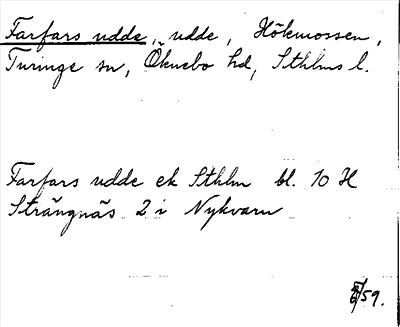 Farfars udde, udde, Hökmossen,
Turinge sn, Öknebo hd, Sthlms l.
Farfars udde ek Sthlm bl. 10 H
Strängnäs 2 i Nykvarn
59.